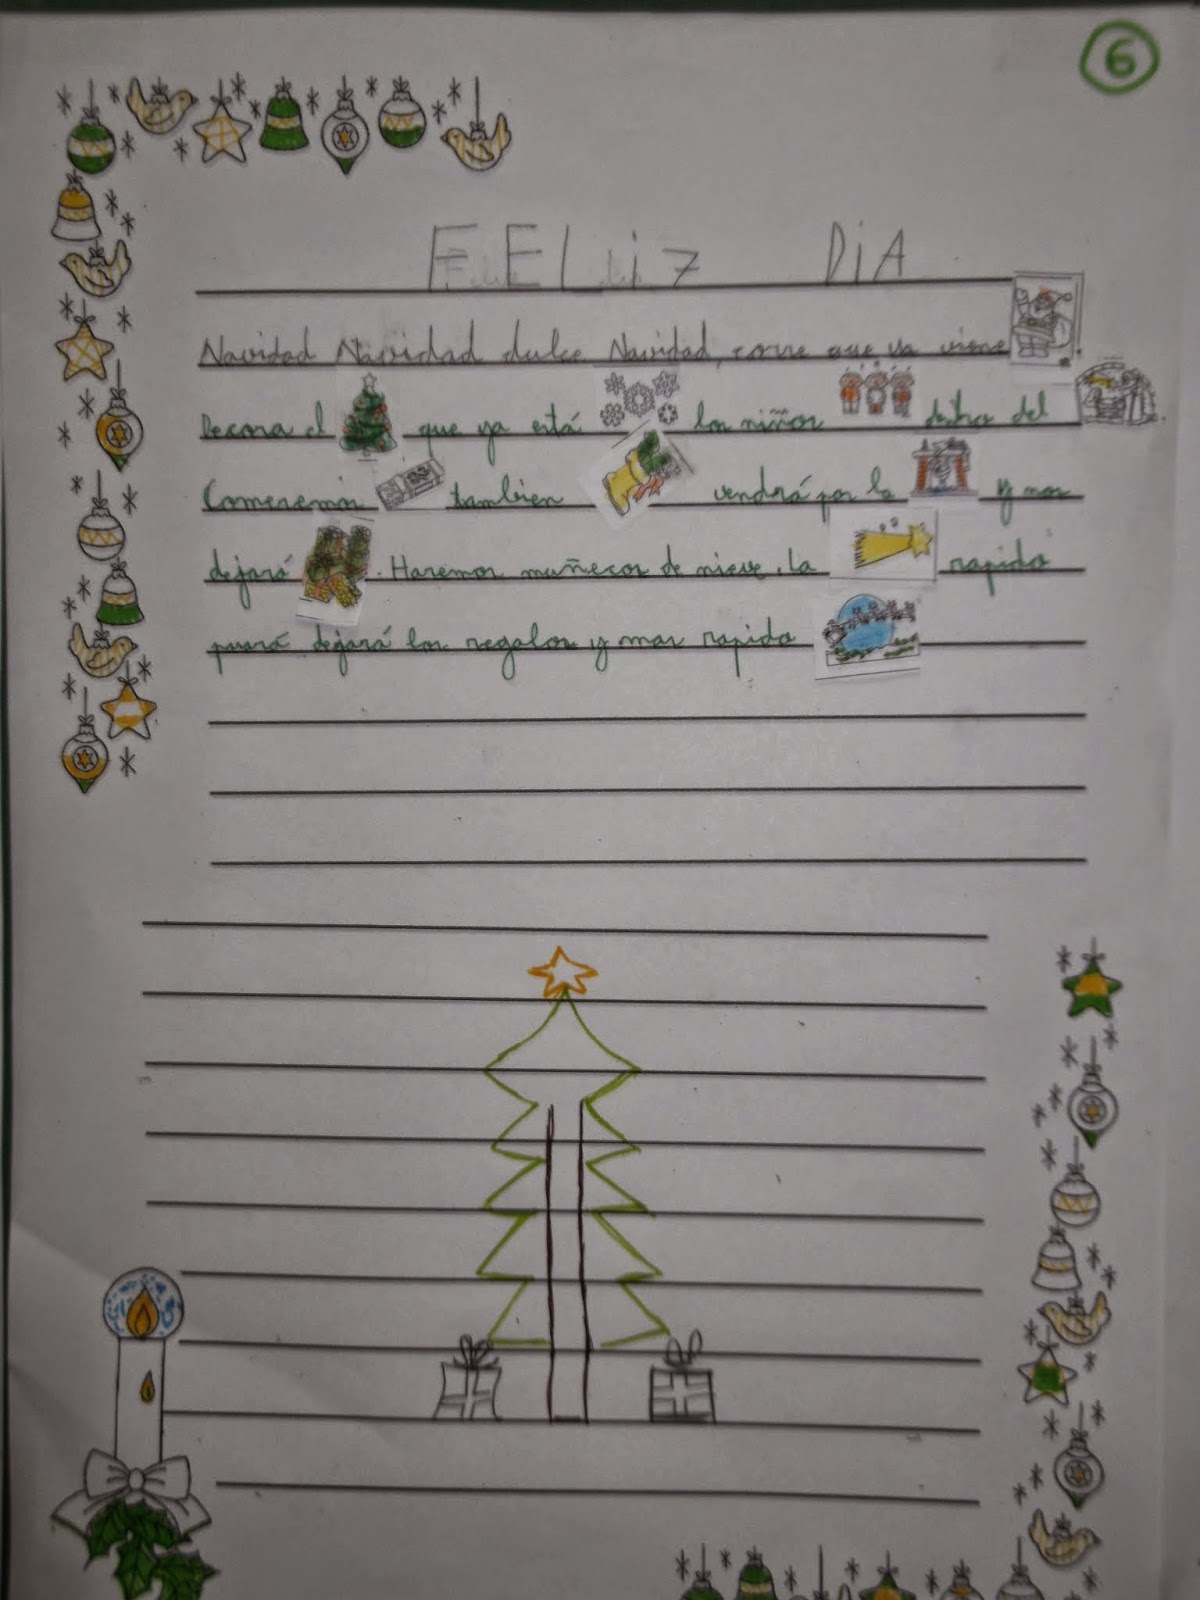 6
FELiZ DiA
Navidad Navidad dulce Navidad, corre que ya viene
Decora el que ya está los niños dentro del
Comeremos tambien vendrá por la y nos
dejará . Haremos muñecos de nieve, la rapido
dejará los regalos y mas rapido